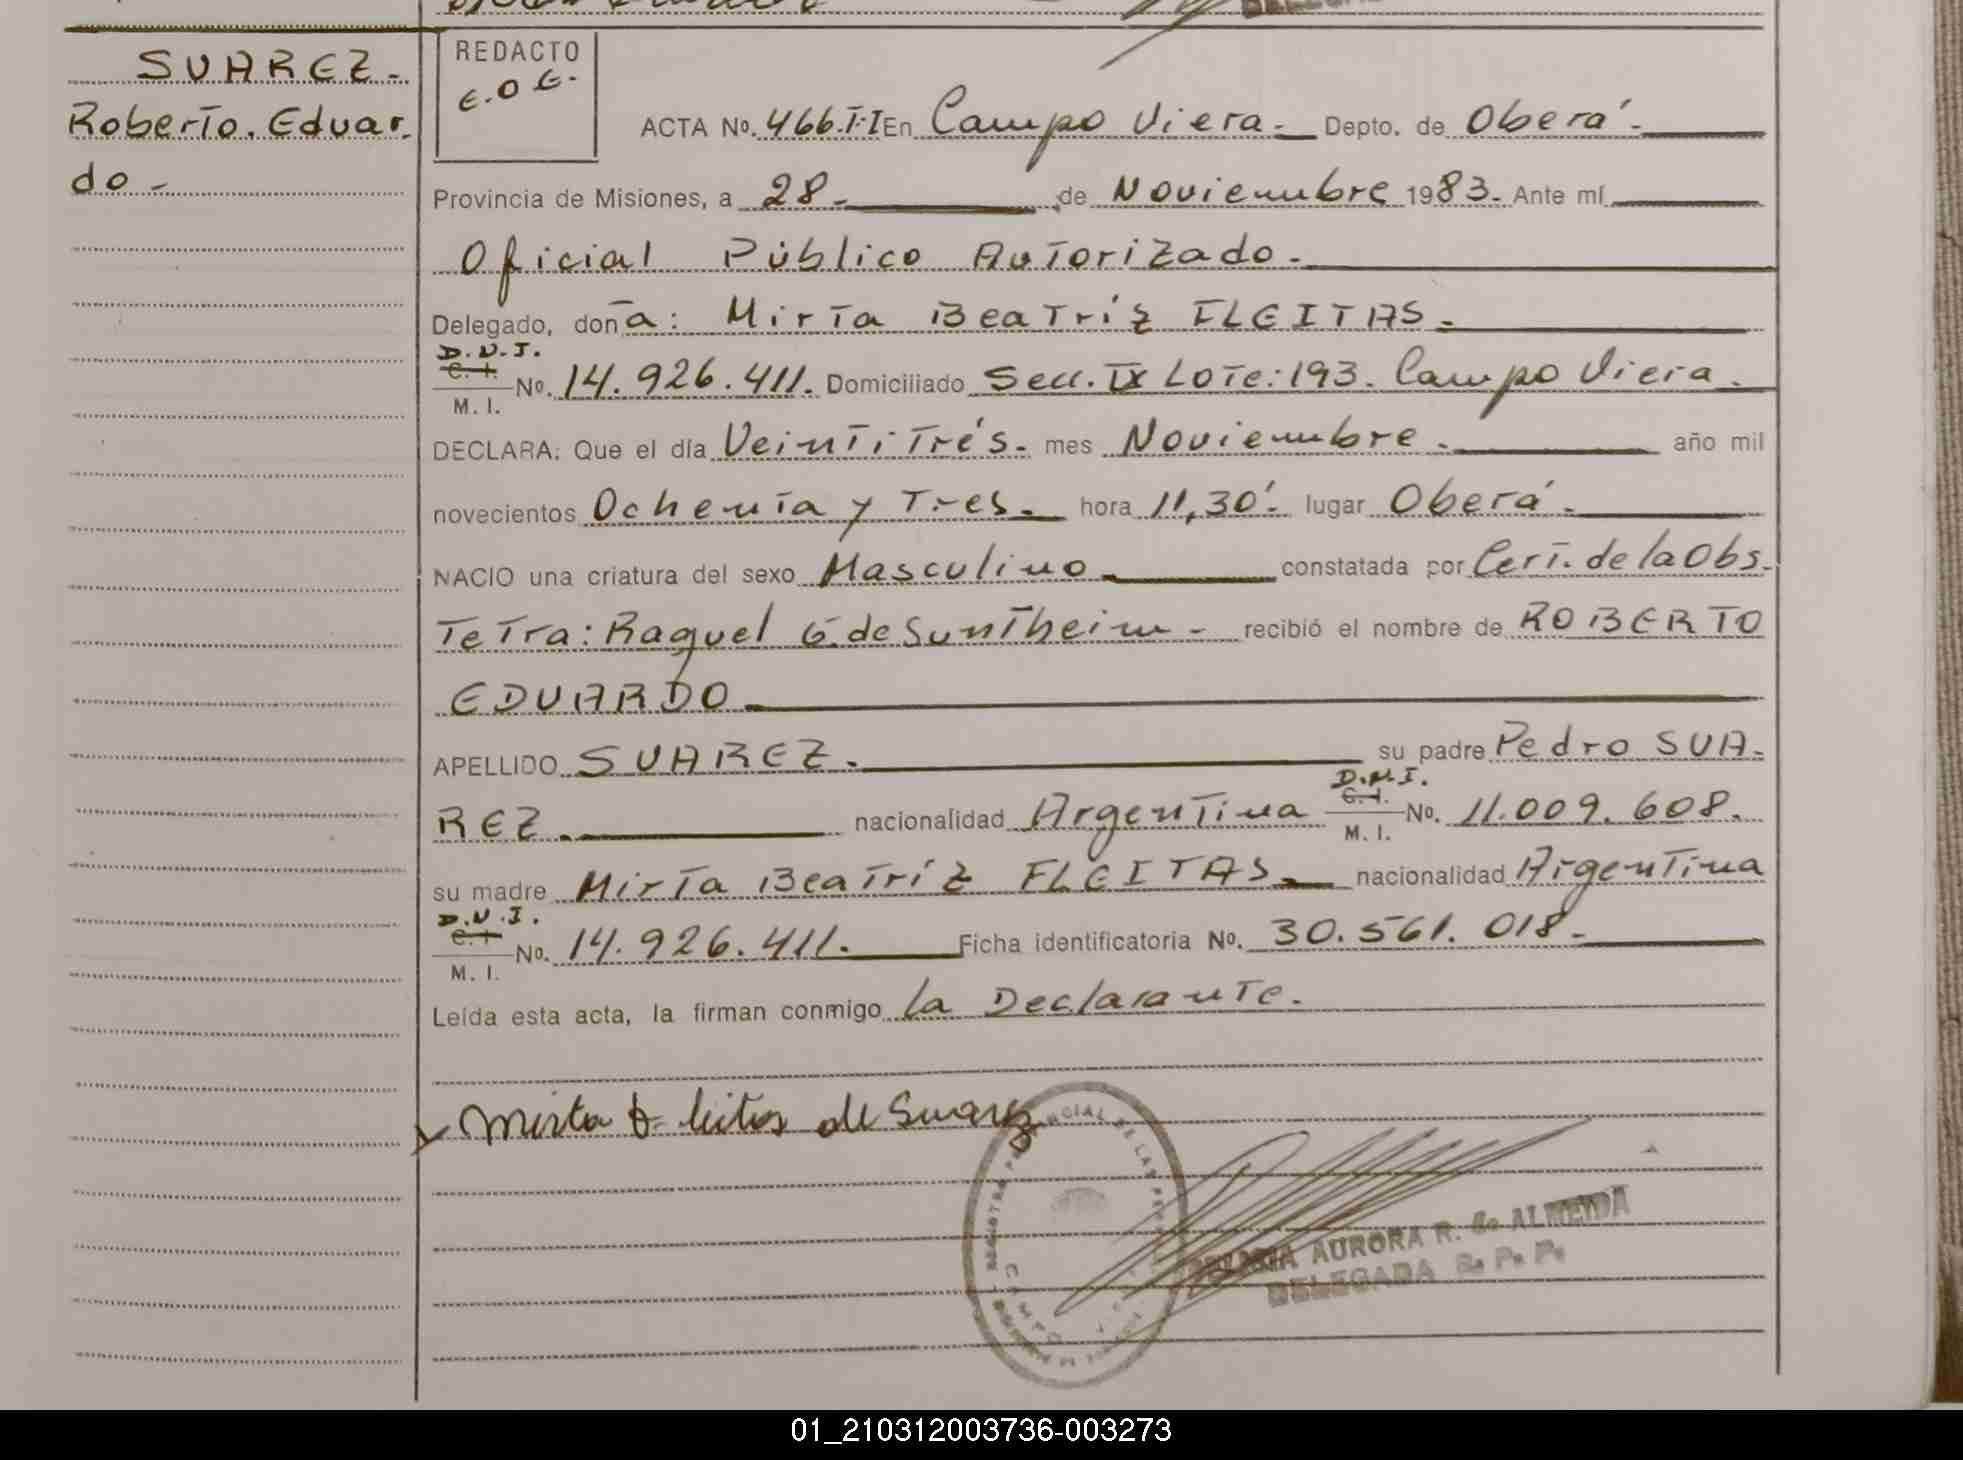 SUAREZ.-
Roberto. Eduar.
do -
REDACTO
E.O.E.-
ACTA No. 466.T.I En Campo Viera.- Depto. de Oberá.-
Provincia de Misiones, a 28.- de Noviembre 1983.- Ante mí
Oficial Público Autorizado.-
Delegado, doña: Mirta Beatríz FLEITAS.-
D.N.I.
C. I.
M. I.
No. 14.926.411. Domiciliado Secc. IX Lote: 193. Campo Viera.
DECLARA: Que el día Veintitrés.- mes Noviembre.- año mil
novecientos Ochenta y Tres.- hora 11,30'.- lugar Oberá.-
NACIO una criatura del sexo Masculino constatada por Cert. de la Obs.
Tetra: Raquel G. de Suntheim.- recibió el nombre de ROBERTO
EDUARDO
APELLIDO SUAREZ.- su padre Pedro SUA-
REZ.- nacionalidad Argentina D.N.I. C. I. M. I. No. 11.009.608.
su madre Mirta Beatríz FLEITAS.- nacionalidad Argentina
D.N.I.
C. I.
M. I.
No. 14.926.411.- Ficha identificatoria No. 30.561.018.-
Leída esta acta, la firman conmigo la Declarante.
Mirta F leitas de Suarez
AURORA R. de ALMEIDA
DELEGADA R. P. P.
01_210312003736-003273